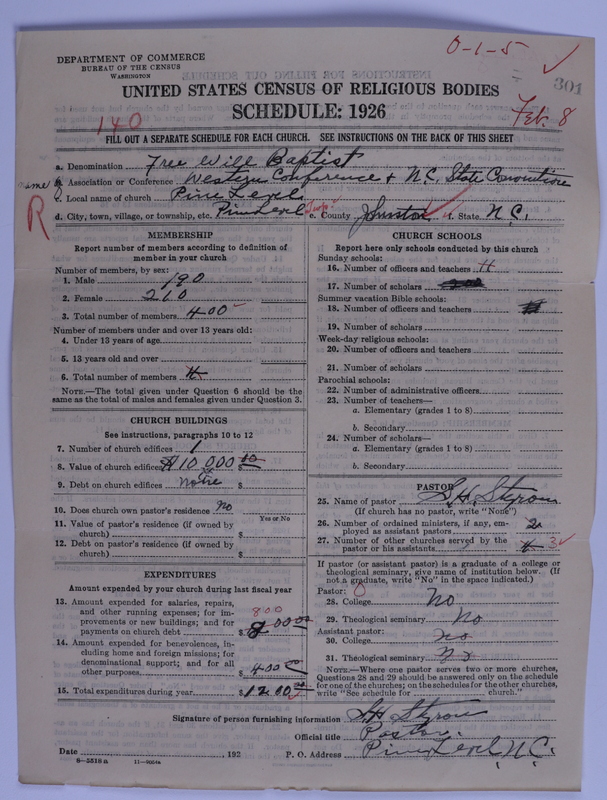 0-1-5
DEPARTMENT OF COMMERCE
BUREAU OF THE CENSUS
WASHINGTON
301
UNITED STATES CENSUS OF RELIGIOUS BODIES
SCHEDULE: 1926
Feb. 8
140
FILL OUT A SEPARATE SCHEDULE FOR EACH CHURCH. SEE INSTRUCTIONS ON THE BACK OF THIS SHEET
a. Denomination Free Will Baptist
name b. Association or Conference Western Conference & N.C. State Convention
c. Local name of church Pine Level
R
d. City, town, village, or township, etc. Pine Level e. County Johnston f. State N.C.
MEMBERSHIP
Report number of members according to definition of
member in your church
Number of members, by sex:
1. Male 190
2. Female 210
3. Total number of members 400
Number of members under and over 13 years old:
4. Under 13 years of age
5. 13 years old and over
6. Total number of members
NOTE.—The total given under Question 6 should be the
same as the total of males and females given under Question 3.
CHURCH BUILDINGS
See instructions, paragraphs 10 to 12
7. Number of church edifices 1
8. Value of church edifices $10,000 00
9. Debt on church edifices None $
10. Does church own pastor's residence No
Yes or No
11. Value of pastor's residence (if owned by
church) $
12. Debt on pastor's residence (if owned by
church) $
EXPENDITURES
Amount expended by your church during last fiscal year
13. Amount expended for salaries, repairs,
and other running expenses; for im-
provements or new buildings; and for
payments on church debt $ 800
14. Amount expended for benevolences, in-
cluding home and foreign missions; for
denominational support; and for all
other purposes $ 400
15. Total expenditures during year $1200
CHURCH SCHOOLS
Report here only schools conducted by this church
Sunday schools:
16. Number of officers and teachers
17. Number of scholars
Summer vacation Bible schools:
18. Number of officers and teachers
19. Number of scholars
Week-day religious schools:
20. Number of officers and teachers
21. Number of scholars
Parochial schools:
22. Number of administrative officers
23. Number of teachers—
a. Elementary (grades 1 to 8)
b. Secondary
24. Number of scholars—
a. Elementary (grades 1 to 8)
b. Secondary
PASTOR
25. Name of pastor S.H. Styron
(If church has no pastor, write "None")
26. Number of ordained ministers, if any, em-
ployed as assistant pastors
27. Number of other churches served by the
pastor or his assistants 3
If pastor (or assistant pastor) is a graduate of a college or
theological seminary, give name of institution below. (If
not a graduate, write "No" in the space indicated.)
Pastor: 0
28. College No
29. Theological seminary No
Assistant pastor:
30. College No
31. Theological seminary No
NOTE.—Where one pastor serves two or more churches,
Questions 28 and 29 should be answered only on the schedule
for one of the churches; on the schedules for the other churches,
write "See schedule for church."
Signature of person furnishing information S.H. Styron
Official title Pastor
Date , 192 P. O. Address Pine Level N.C.
8—5518a 11—9064a